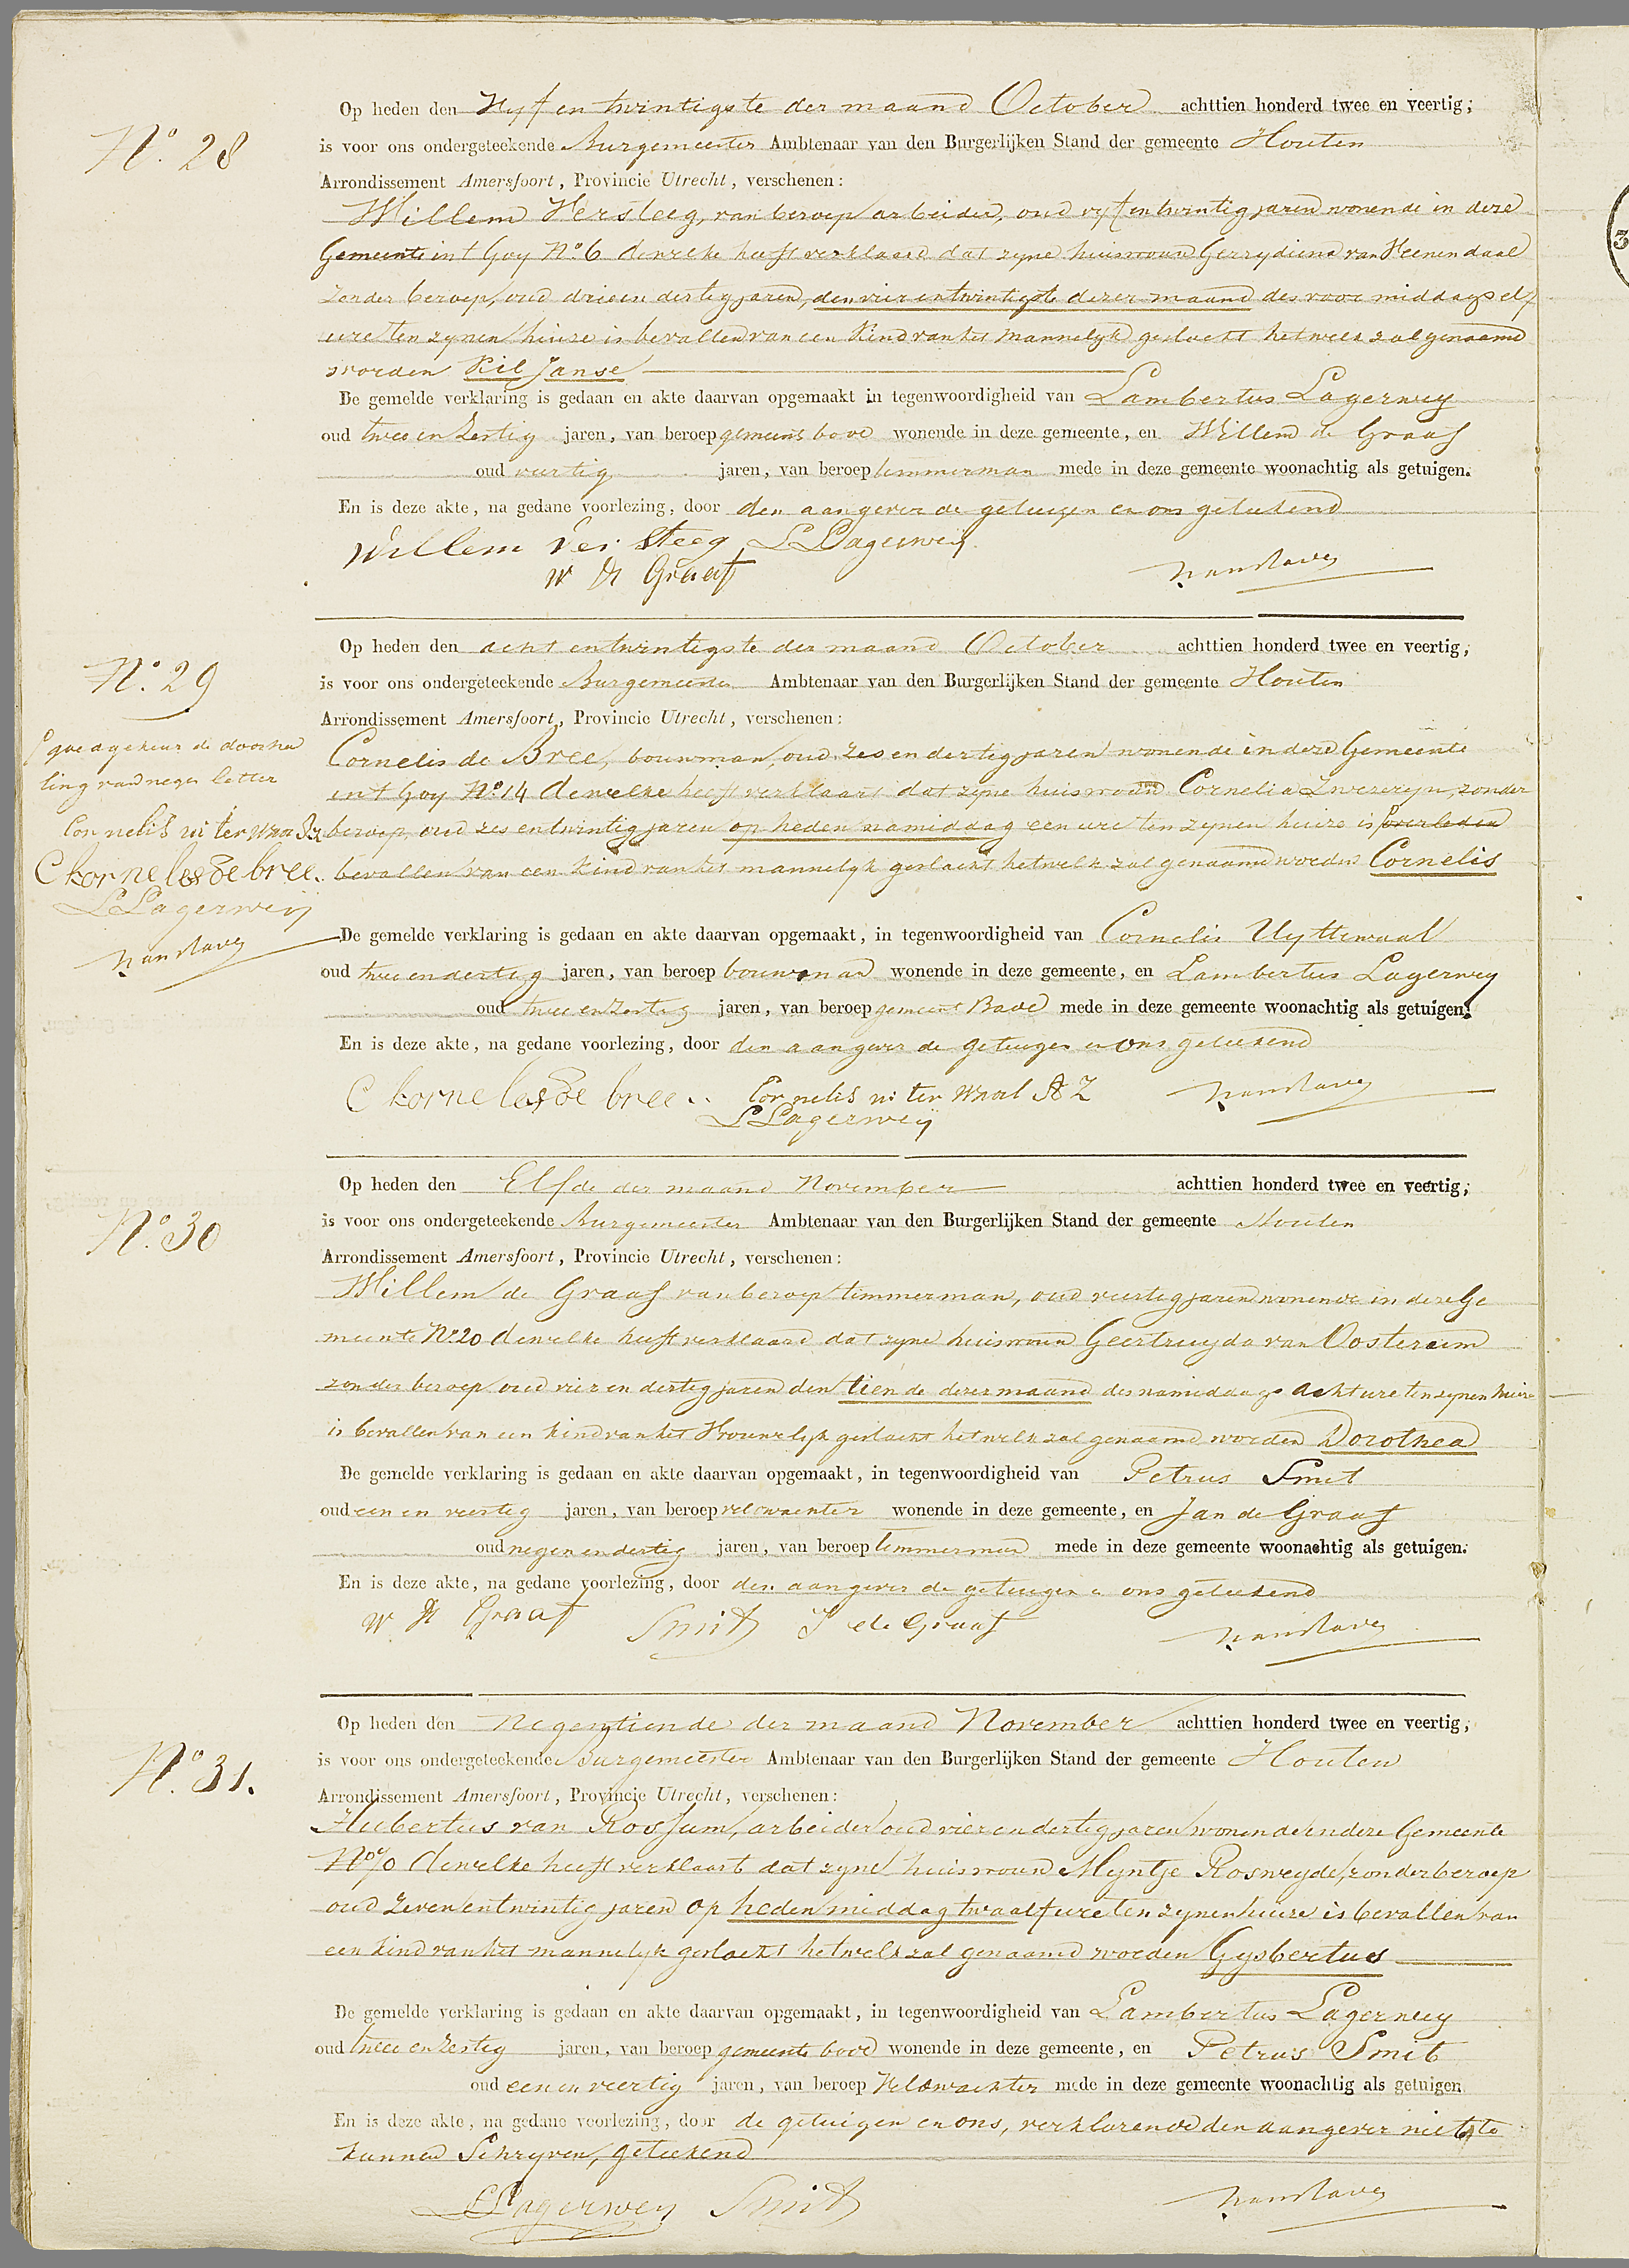 No. 28
Op heden den Vyf en twintigste der maand October achttien honderd twee en veertig;
is voor ons ondergeteekende Burgemeester Ambtenaar van den Burgerlijken Stand der gemeente Houten
Arrondissement Amersfoort, Provincie Utrecht, verschenen:
Willem Versteeg, van beroep arbeider, oud vyf en twintig jaren wonende in deze
Gemeente in t Goy No. 6 dewelke heeft verklaard dat zyne huisvrouw Gerrydiena van Veenendaal
zonder beroep, oud drie en dertig jaren, den vier en twintigste dezer maand des voor middags elf
ure ten zynen huize is bevallen van een Kind van het Mannelyk geslacht hetwelk zal genaamd
worden Kil Janse
De gemelde verklaring is gedaan en akte daarvan opgemaakt in tegenwoordigheid van Lambertus Lagerwey
oud twee en Zestig jaren, van beroep gemeents bode wonende in deze gemeente, en Willem de Graaf
oud veertig jaren, van beroep timmerman mede in deze gemeente woonachtig als getuigen.
En is deze akte, na gedane voorlezing, door den aangever de getuigen en ons geteekend
Willem ver Steeg L Lagerweij
W D Graaf
No. 29
Op heden den acht en twintigste der maand October achttien honderd twee en veertig;
is voor ons ondergeteekende Burgemeester Ambtenaar van den Burgerlijken Stand der gemeente Houten
Arrondissement Amersfoort, Provincie Utrecht, verschenen:
goedgekeurd de doorha
ling van negen letter
Cornelis uiterwaal
C kornelesde bree.
L Lagerweij
Cornelis de Bree, bouwman, oud zes en dertig jaren wonende in deze Gemeente
in t Goy No. 14 dewelke heeft verklaart dat zyne huisvrouw Cornelia Zwezeryn, zonder
beroep, oud zes en twintig jaren op heden namiddag een ure ten zynen huize is overleden
bevallen van een Kind van het mannelyk geslacht hetwelk zal genaamd worden Cornelis
De gemelde verklaring is gedaan en akte daarvan opgemaakt, in tegenwoordigheid van Cornelis Uyttewaal
oud twee en dertig jaren, van beroep bouwman wonende in deze gemeente, en Lambertus Lagerwey
oud twee en Zestig jaren, van beroep gemeent Bode mede in deze gemeente woonachtig als getuigen.
En is deze akte, na gedane voorlezing, door den aangever de getuigen en ons geteekend
C kornelesde bree.. Cornelis uiterwaal AZ
L Lagerweij
No. 30
Op heden den Elfde der maand November achttien honderd twee en veertig;
is voor ons ondergeteekende Burgemeester Ambtenaar van den Burgerlijken Stand der gemeente Houten
Arrondissement Amersfoort, Provincie Utrecht, verschenen:
Willem de Graaf van beroep timmerman, oud veertig jaren wonende in deze Ge
meente No. 20 dewelke heeft verklaard dat zyne huisvrouw Geertruyda van Oosterom
zonder beroep oud vier en dertig jaren den tiende dezer maand des namiddags acht ure ten zynen huize
is bevallen van een kind van het Vrouwelyk geslacht hetwelk zal genaamd worden Dorothea
De gemelde verklaring is gedaan en akte daarvan opgemaakt, in tegenwoordigheid van Petrus Smit
oud een en veertig jaren, van beroep veldwachter wonende in deze gemeente, en Jan de Graaf
oud negen en dertig jaren, van beroep timmerman mede in deze gemeente woonachtig als getuigen.
En is deze akte, na gedane voorlezing, door den aangever de getuigen en ons geteekend
W D Graaf Smit J de Graaf
No. 31.
Op heden den Negentiende der maand November achttien honderd twee en veertig;
is voor ons ondergeteekende Burgemeester Ambtenaar van den Burgerlijken Stand der gemeente Houten
Arrondissement Amersfoort, Provincie Utrecht, verschenen:
Hubertus van Rossum, arbeider oud vier en dertig jaren wonende in deze Gemeente
dewelke heeft verklaart dat zyne huisvrouw Myntje Rosweyde, zonder beroep
oud Zeven en twintig jaren op heden middag twaalf ure ten zynen huize is bevallen van
een kind van het mannelyk geslacht hetwelk zal genaamd worden Gysbertus
De gemelde verklaring is gedaan en akte daarvan opgemaakt, in tegenwoordigheid van Lambertus Lagerwey
oud twee en Zestig jaren, van beroep gemeente bode wonende in deze gemeente, en Petrus Smit
oud een en veertig jaren, van beroep Veldwachter mede in deze gemeente woonachtig als getuigen
En is deze akte, na gedane voorlezing, door de getuigen en ons, verklarende den aangever niet te
kunnen Schryven, geteekend
L Lagerweij Smit